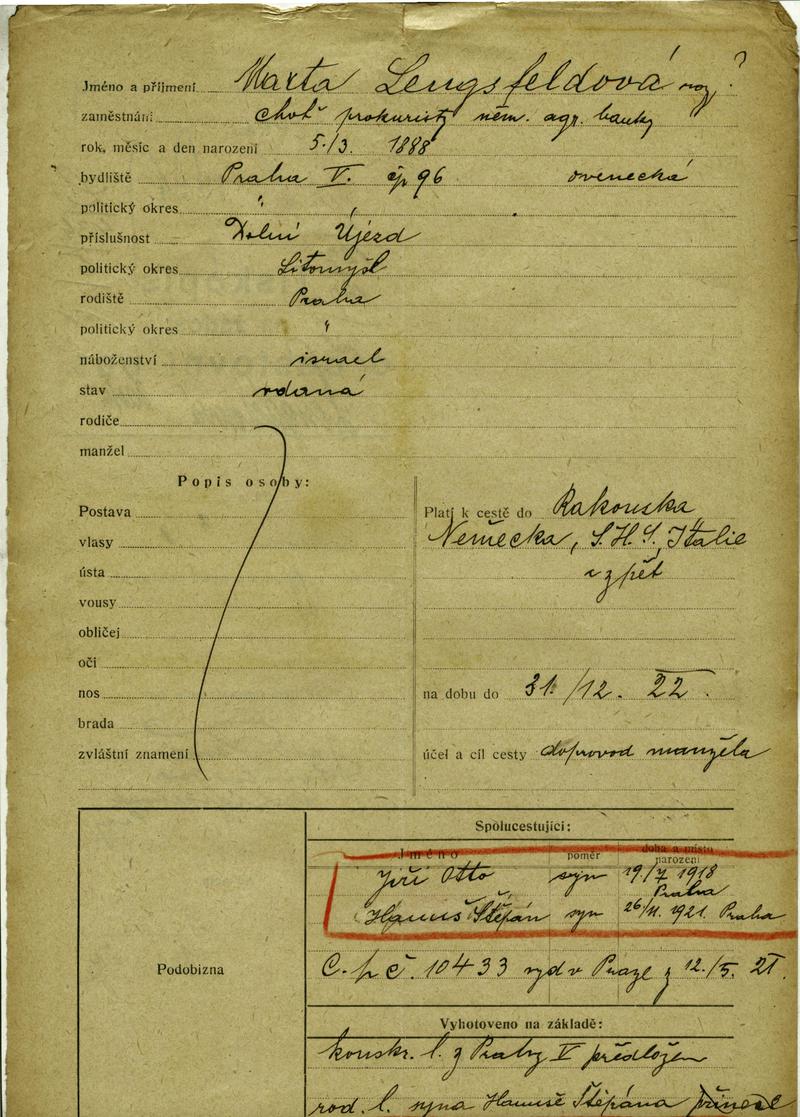 Jméno a příjmení Marta Lengsfeldová roz. ?
zaměstnání choť prokuristy něm. agr. banky
rok, měsíc a den narození 5./3. 1888
bydliště Praha V. čp 96 ovenecká
politický okres "
příslušnost Dolní Újezd
politický okres Litomyšl
rodiště Praha
politický okres "
náboženství israel
stav vdaná
rodiče
manžel
Popis osoby:
Postava
vlasy
ústa
vousy
obličej
oči
nos
brada
zvláštní znamení
Platí k cestě do Rakouska,
Německa, S.H.S., Italie
a zpět
na dobu do 31./12. 22.
účel a cíl cesty doprovod manžela
Podobizna
Spolucestující:
Jméno poměr doba a místo narození
Jiří Otto syn 19./7 1918 Praha
Hanuš Štěpán syn 26/11. 1921. Praha
C. p č. 10433 vyd v Praze z 12./5. 21.
Vyhotoveno na základě:
konskr. l. z Prahy V předložen
rod. l. syna Hanuše Štěpána